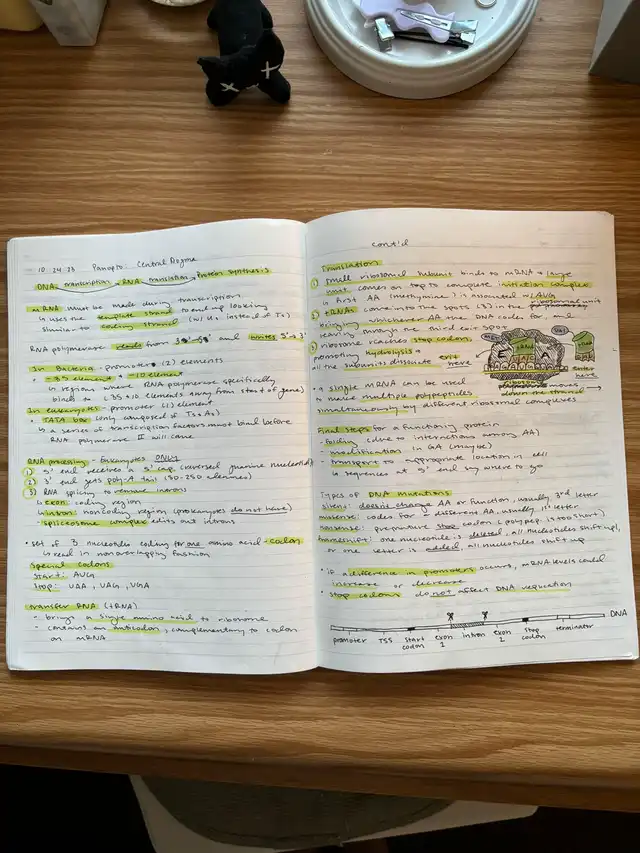 10.24.23 Panopto: Central Dogma
DNA transcription → RNA translation → Protein synthesis
mRNA must be made during transcription
↳ uses the template strand to end up looking
similar to coding strand (w/ Us instead of Ts)
RNA polymerase reads from 3'→5' and writes 5'→3'
In Bacteria - promoter (2) elements
• -35 element, -10 element
↳ regions where RNA polymerase specifically
binds to (35 + 10 elements away from start of gene)
In eukaryotes - promoter (1) element
• TATA box (only composed of Ts + As)
↳ a series of transcription factors must bind before
RNA polymerase II will come
RNA processing - Eukaryotes ONLY
1) 5' end receives a 5' cap (reversed guanine nucleotide)
2) 3' end gets poly-A tail (50-250 adenines)
3) RNA splicing to remove introns
↳ exon: coding region
↳ intron: noncoding region (prokaryotes do not have)
- spliceosome complex edits out introns
• set of 3 nucleotides coding for one amino acid - codon
↳ read in nonoverlapping fashion
Special codons
start: AUG
stop: UAA, UAG, UGA
transfer RNA (tRNA)
- brings a single amino acid to ribosome
- contains an anticodon, complementary to codon
on mRNA
cont'd
Translation
1) small ribosomal subunit binds to mRNA + large
unit comes on top to complete initiation complex
↳ first AA (methionine) is associated w/ AUG
2) tRNAs come into the spots (3) in the ribosomal unit
bringing whichever AA the DNA codes for and
leaving through the third exit spot
3) ribosome reaches stop codon,
promoting hydrolysis +
all the subunits dissociate
exit
here
E P A
tRNA
enter
here
ribosome moves
down the strand →
• a single mRNA can be used
to make multiple polypeptides
simultaneously by different ribosomal complexes
Final steps for a functioning protein
- folding (due to interactions among AA)
- modification in GA (maybe)
- transport to appropriate location in cell
↳ sequences at 5' end say where to go
Types of DNA mutations
silent: doesn't change AA or function, usually 3rd letter
missense: codes for a different AA, usually 1st letter
nonsense: premature stop codon (polypep. is too short)
frameshift: one nucleotide is deleted, all nucleotides shift up,
or one letter is added, all nucleotides shift up
• if a difference in promoters occurs, mRNA levels could
increase or decrease
• stop codons do not affect DNA replication
DNA
promoter TSS start codon exon 1 intron exon 2 stop codon terminator